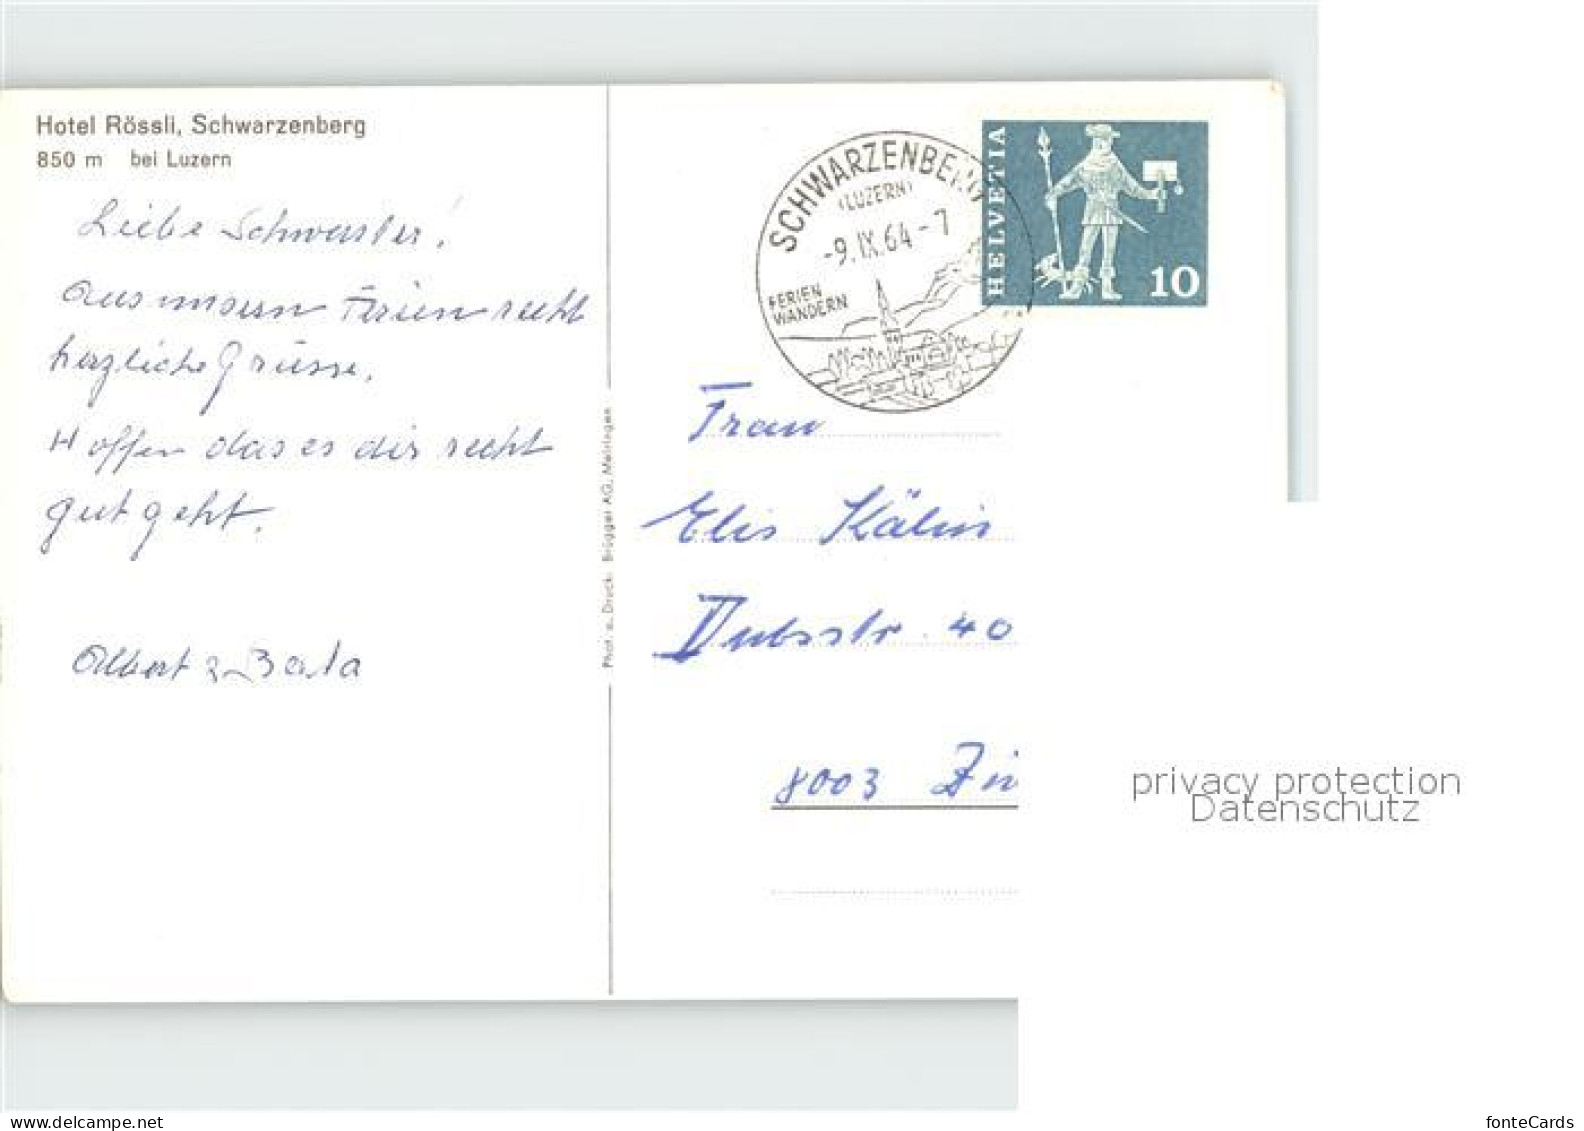 Hotel Rössli, Schwarzenberg
850 m bei Luzern
Liebe Schwester!
Aus unsern Ferien recht
herzliche Grüsse.
Hoffen das es dir recht
gut geht.
Albert &
Phot. u. Druck: Brügger AG, Meiringen
SCHWARZENBERG
(LUZERN)
-9.IX.64-7
FERIEN
WANDERN
HELVETIA
10
Frau
Elis Kälin
Dubsstr. 40
8003 Zü
privacy protection
Datenschutz
fonteCards